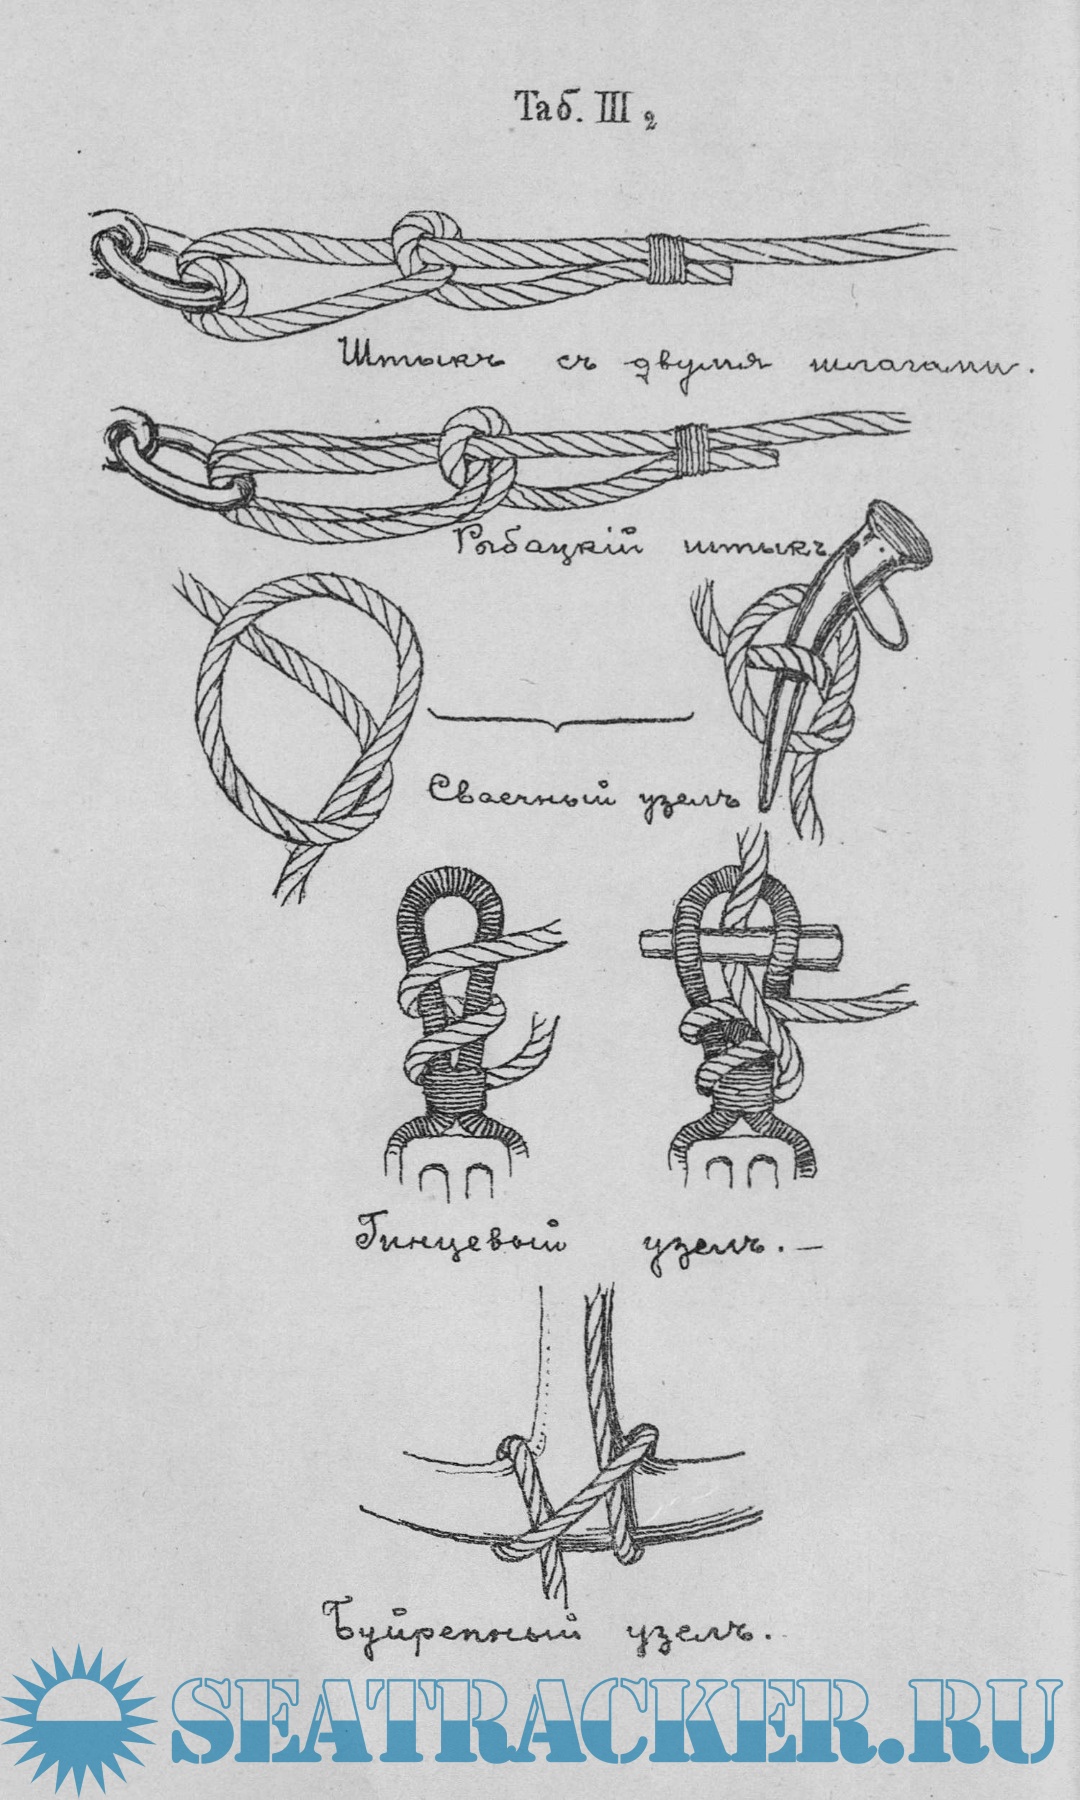 Таб. III 2
Штыкъ съ двумя шлагами.
Рыбацкій штыкъ
Сваечный узелъ
Гинцевый узелъ. —
Буйрепный узелъ.
SEATRACKER.RU